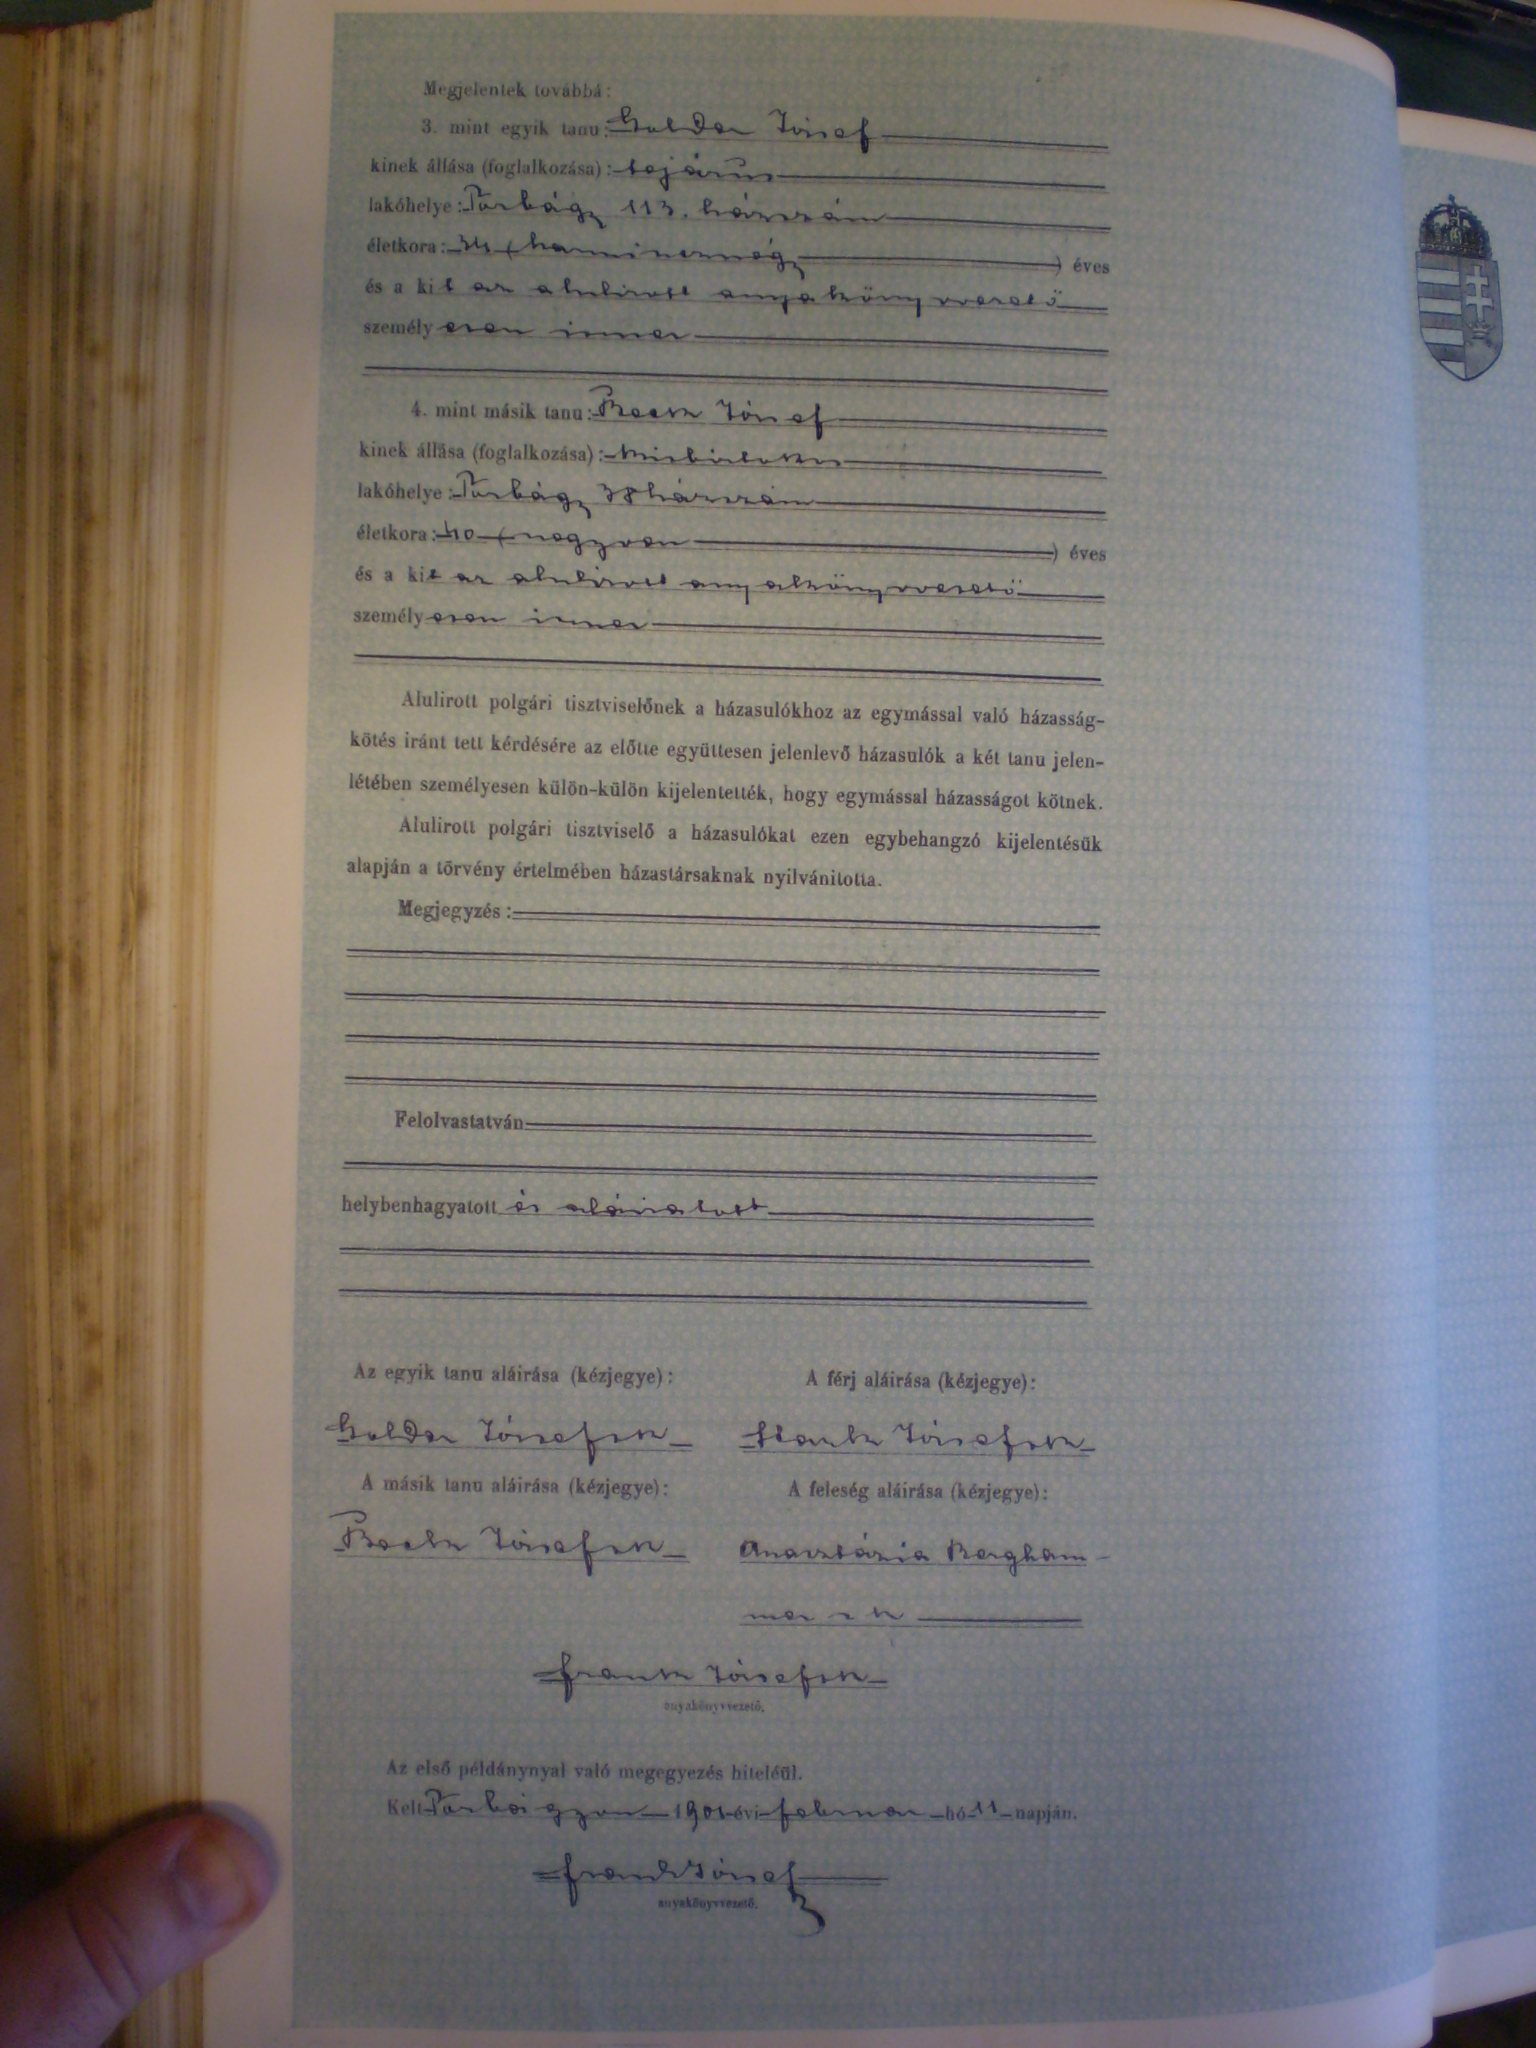 Megjelentek továbbá:
3. mint egyik tanu: Golder József
kinek állása (foglalkozása): tejárus
lakóhelye: Torbágy 113. házszám
életkora: 34 (harmincznégy) éves
és a kit az alulirott anyakönyvvezető
személyesen ismer
4. mint másik tanu: Beck József
kinek állása (foglalkozása): kisbirtokos
lakóhelye: Torbágy 38 házszám
életkora: 40 (negyven) éves
és a kit az alulirott anyakönyvvezető
személyesen ismer
Alulirott polgári tisztviselőnek a házasulókhoz az egymással való házasság-
kötés iránt tett kérdésére az előtte együttesen jelenlevő házasulók a két tanu jelen-
létében személyesen külön-külön kijelentették, hogy egymással házasságot kötnek.
Alulirott polgári tisztviselő a házasulókat ezen egybehangzó kijelentésük
alapján a törvény értelmében házastársaknak nyilvánitotta.
Megjegyzés:
Felolvastatván
helybenhagyatott és aláiratott
Az egyik tanu aláirása (kézjegye): A férj aláirása (kézjegye):
Golder József sk Stark József sk
A másik tanu aláirása (kézjegye): A feleség aláirása (kézjegye):
Beck József sk Anasztázia Bergham-
mer sk
Frank József sk
anyakönyvvezető.
Az első példánynyal való megegyezés hiteléül.
Kelt Torbágyon 1901 évi február hó 11 napján.
Frank József
anyakönyvvezető.